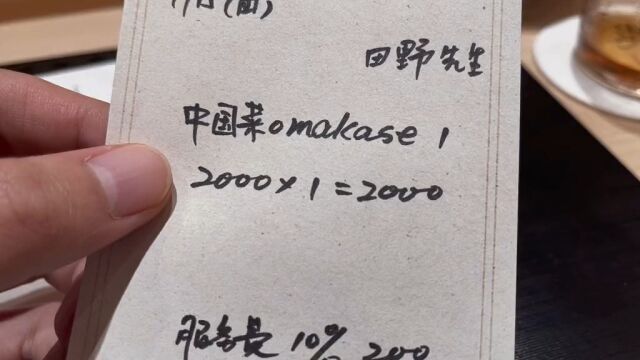 田野先生
中国菜omakase 1
2000×1=2000
服务费 10% 200